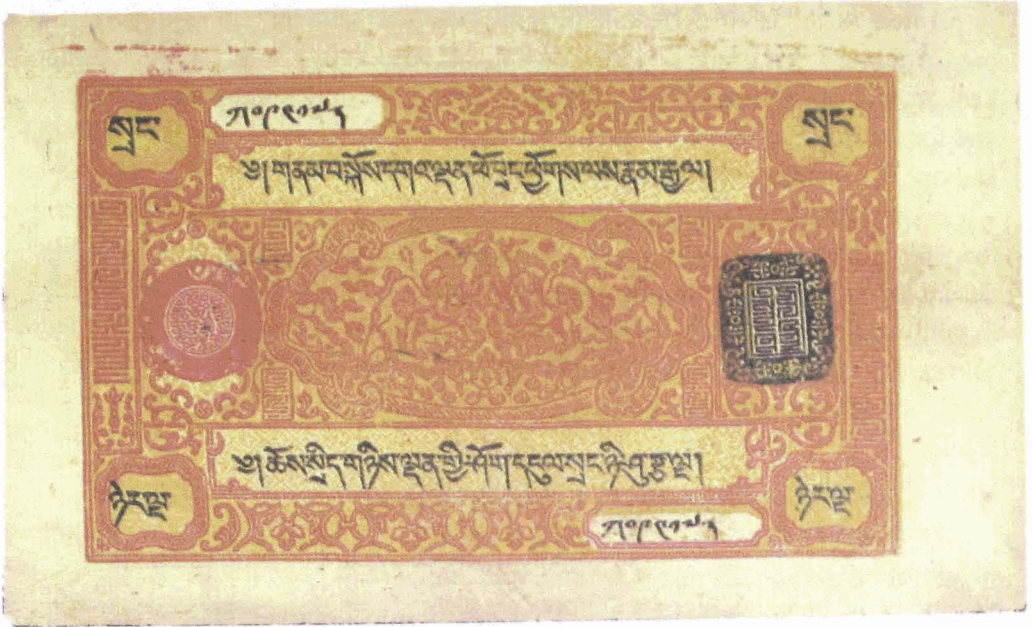 སྲང་ སྲང་
༄། གནམ་བསྐོས་དགའ་ལྡན་ཕོ་བྲང་ཕྱོགས་ལས་རྣམ་རྒྱལ།
༄། ཆོས་སྲིད་གཉིས་ལྡན་གྱི་ཤོག་དངུལ་སྲང་ཉི་ཤུ་རྩ་ལྔ།
ཉེར་ལྔ ཉེར་ལྔ